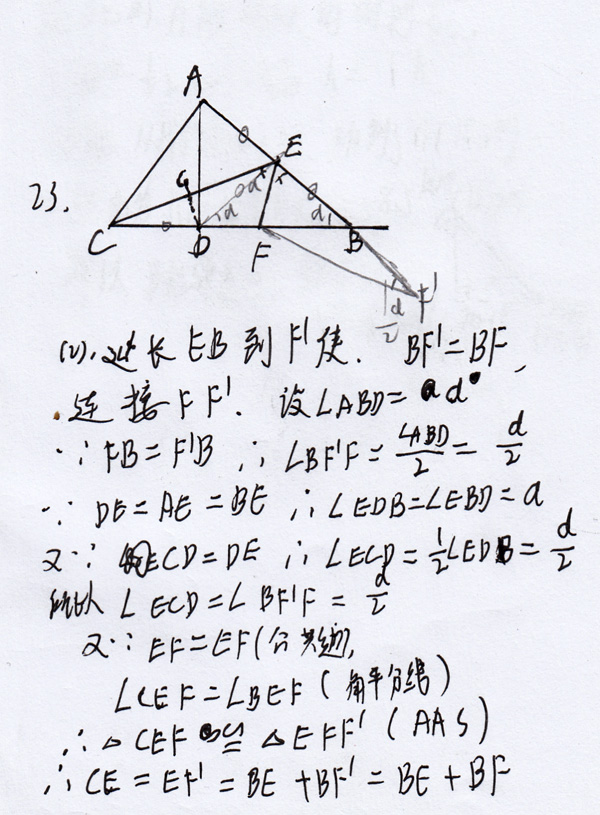 23.
A
E
G
C
D
F
B
F'
α
α
α
α/2
(2). 延长EB到F'使. BF'=BF,
连接FF'. 设∠ABD=α°
∵FB=F'B ∴∠BF'F=∠ABD/2=α/2
∵DE=AE=BE ∴∠EDB=∠EBD=α
又∵CD=DE ∴∠ECD=1/2∠EDB=α/2
所以∠ECD=∠BF'F=α/2
又∵EF=EF(公共边),
∠CEF=∠BEF(角平分线)
∴△CEF≌△EFF'(AAS)
∴CE=EF'=BE+BF'=BE+BF